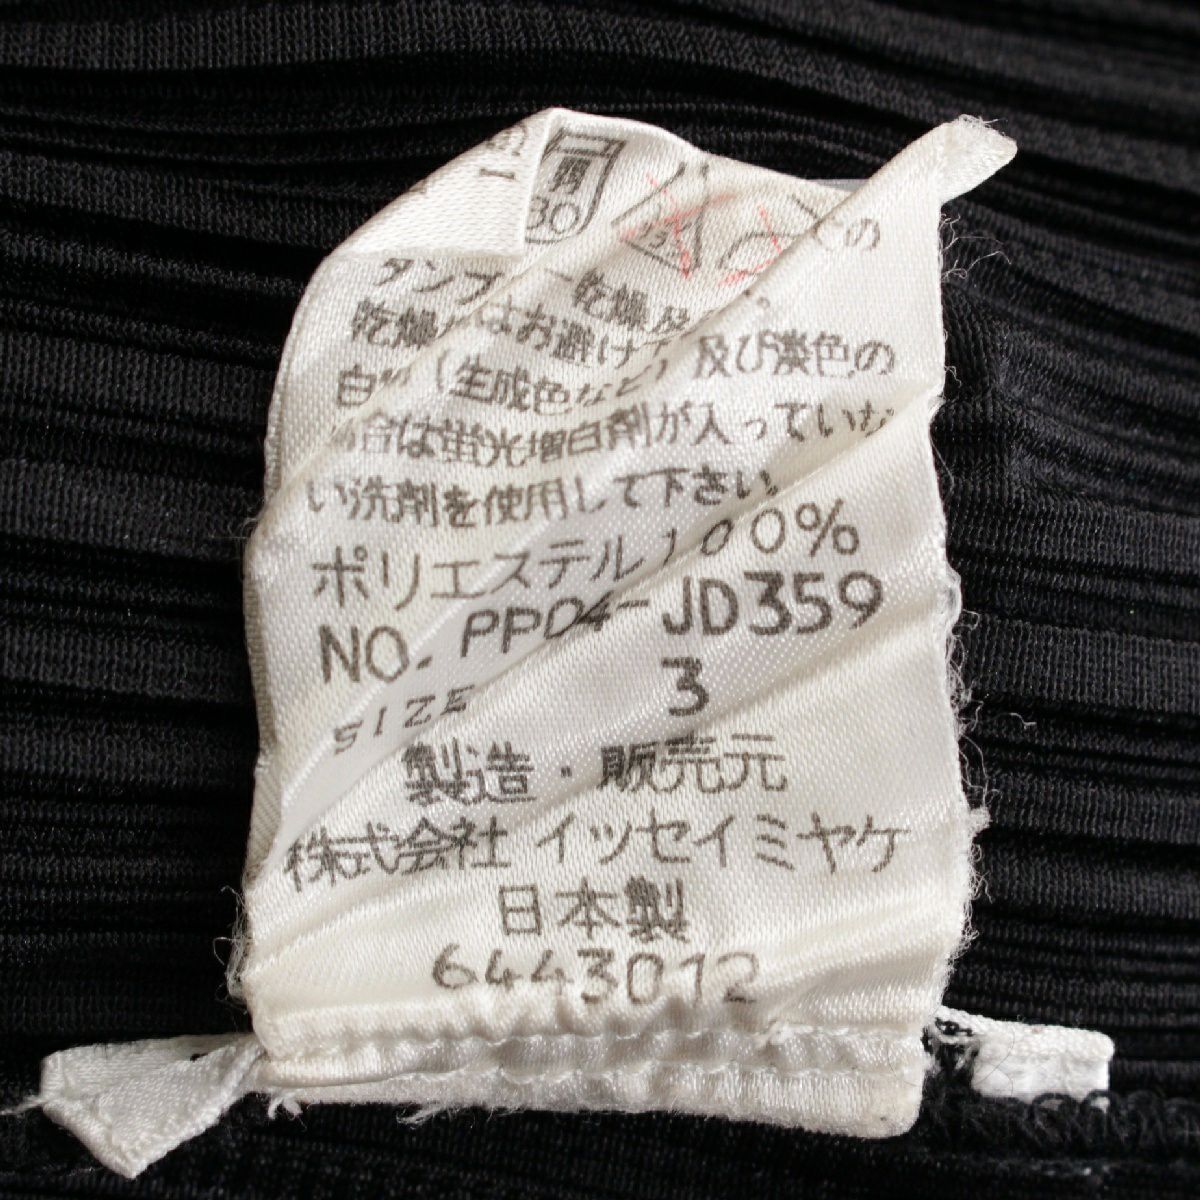 30
ての
タンブ ー乾燥及
乾燥 はお避け下
白 (生成色など)及び淡色の
合は蛍光増白剤が入っていな
い洗剤を使用して下さい。
ポリエステル100%
NO. PP04-JD359
SIZE 3
製造・販売元
株式会社 イッセイミヤケ
日本製
6443012